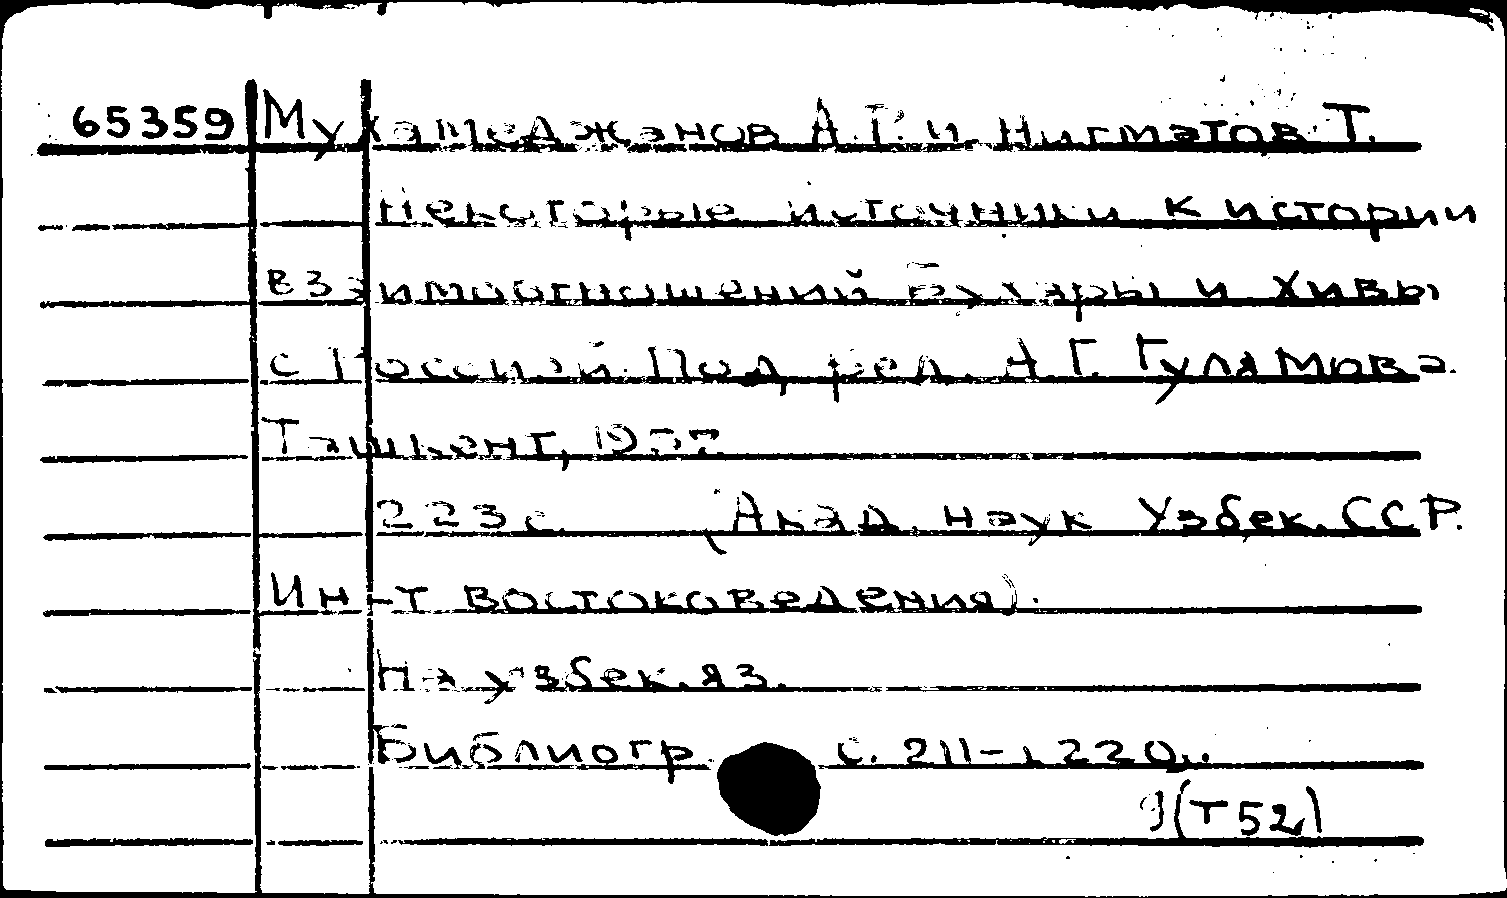 65359 Мухамеджанов А.Г. и Нигматов Т.
Некоторые источники к истории
взаимоотношений Бухары и Хивы
с Россией. Под ред. А.Г. Гулямова.
Ташкент, 1957.
223 с. (Акад. наук Узбек. ССР.
Ин-т востоковедения).
На узбек. яз.
Библиогр. с. 211-220.
9(Т52)